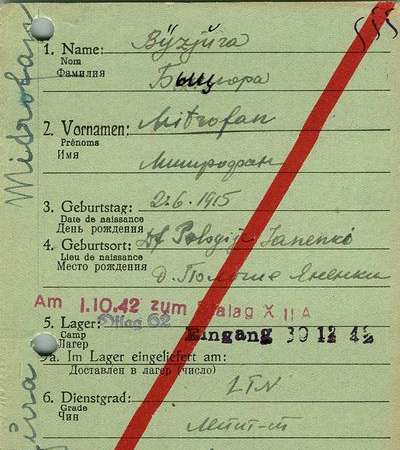 Midrofan
1. Name: Byzjura
Nom
Фамилия Быцюра
2. Vornamen: Mitrofan
Prénoms
Имя Митрофан
3. Geburtstag: 2.6.1915
Date de naissance
День рождения
4. Geburtsort: Df
Lieu de naissance
Место рождения д. Яненки
Am 1.10.42 zum Stalag X II A
5. Lager: Oflag 62 Eingang 30 12 42
Camp
Лагерь
5a. Im Lager eingeliefert am:
Доставлен в лагер (число)
6. Dienstgrad: LTN
Grade
Чин